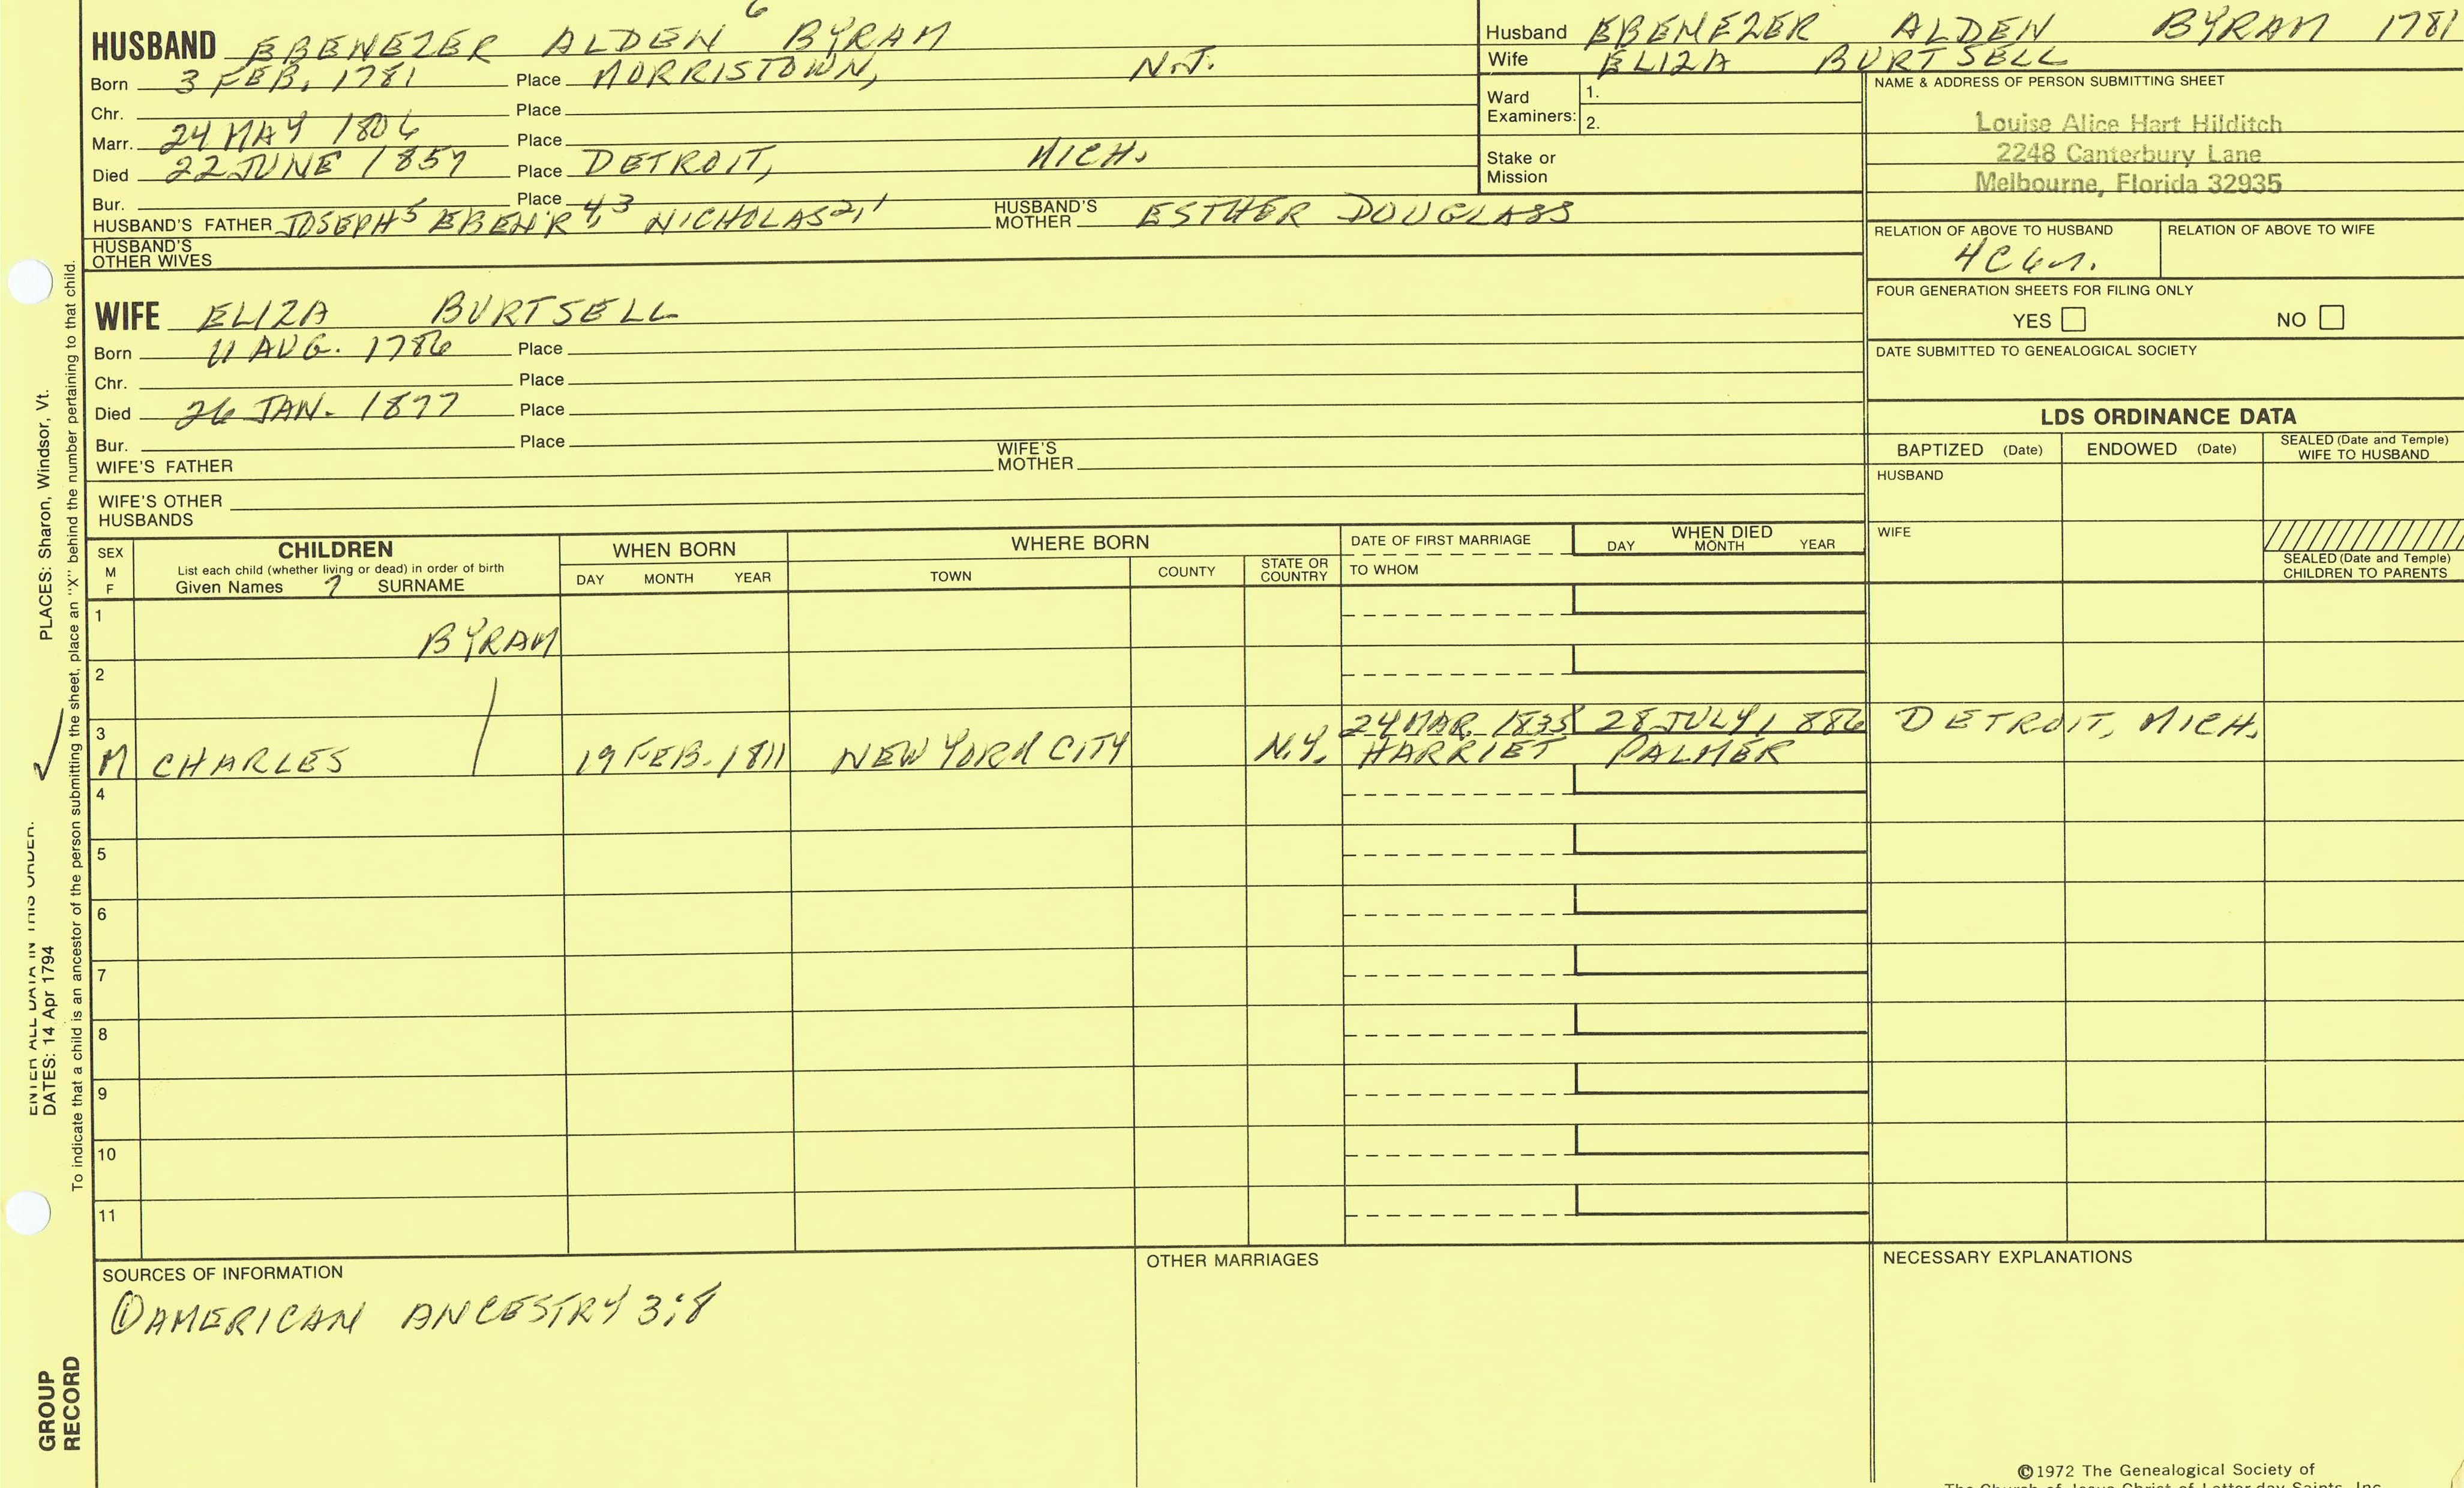 HUSBAND EBENEZER ALDEN 6 BYRAM
Born 3 FEB. 1781 Place MORRISTOWN, N.J.
Chr. Place
Marr. 24 MAY 1806 Place
Died 22 JUNE 1857 Place DETROIT, MICH.
Bur. Place
HUSBAND'S FATHER JOSEPH5 EBEN'R 4,3 NICHOLAS2,1 HUSBAND'S MOTHER ESTHER DOUGLASS
HUSBAND'S
OTHER WIVES
Husband EBENEZER ALDEN BYRAM 1781
Wife ELIZA BURTSELL
Ward
Examiners:
1.
2.
Stake or
Mission
NAME & ADDRESS OF PERSON SUBMITTING SHEET
Louise Alice Hart Hilditch
2248 Canterbury Lane
Melbourne, Florida 32935
RELATION OF ABOVE TO HUSBAND RELATION OF ABOVE TO WIFE
FOUR GENERATION SHEETS FOR FILING ONLY
YES NO
DATE SUBMITTED TO GENEALOGICAL SOCIETY
WIFE ELIZA BURTSELL
Born 11 AUG. 1786 Place
Chr. Place
Died 26 JAN. 1877 Place
Bur. Place
WIFE'S FATHER WIFE'S MOTHER
WIFE'S OTHER
HUSBANDS
LDS ORDINANCE DATA
BAPTIZED (Date) ENDOWED (Date) SEALED (Date and Temple) WIFE TO HUSBAND
HUSBAND
WIFE
SEALED (Date and Temple)
CHILDREN TO PARENTS
SEX
M
F
CHILDREN
List each child (whether living or dead) in order of birth
Given Names ? SURNAME
WHEN BORN
DAY MONTH YEAR
WHERE BORN
TOWN COUNTY STATE OR COUNTRY
DATE OF FIRST MARRIAGE
TO WHOM
WHEN DIED
DAY MONTH YEAR
1
BYRAM
2
3
24 MAR. 1835 28 JULY 1886 DETROIT, MICH.
M CHARLES 19 FEB. 1811 NEW YORK CITY N.Y. HARRIET PALMER
4
5
6
7
8
9
10
11
SOURCES OF INFORMATION
① AMERICAN ANCESTRY 3:8
OTHER MARRIAGES
NECESSARY EXPLANATIONS
©1972 The Genealogical Society of
The Church of Jesus Christ of Letter-day Saints, Inc.
ENTER ALL DATA IN THIS ORDER:
DATES: 14 Apr 1794
PLACES: Sharon, Windsor, Vt.
To indicate that a child is an ancestor of the person submitting the sheet, place an "X" behind the number pertaining to that child.
GROUP
RECORD